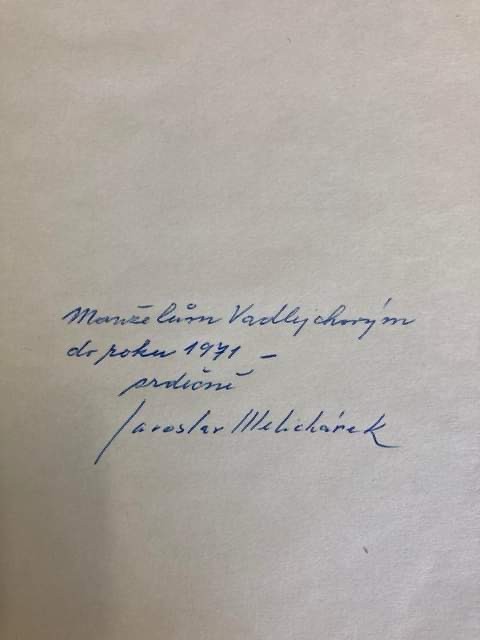 Manželům Vadlejchovým
do roku 1971 –
srdečně
Jaroslav Melichárek